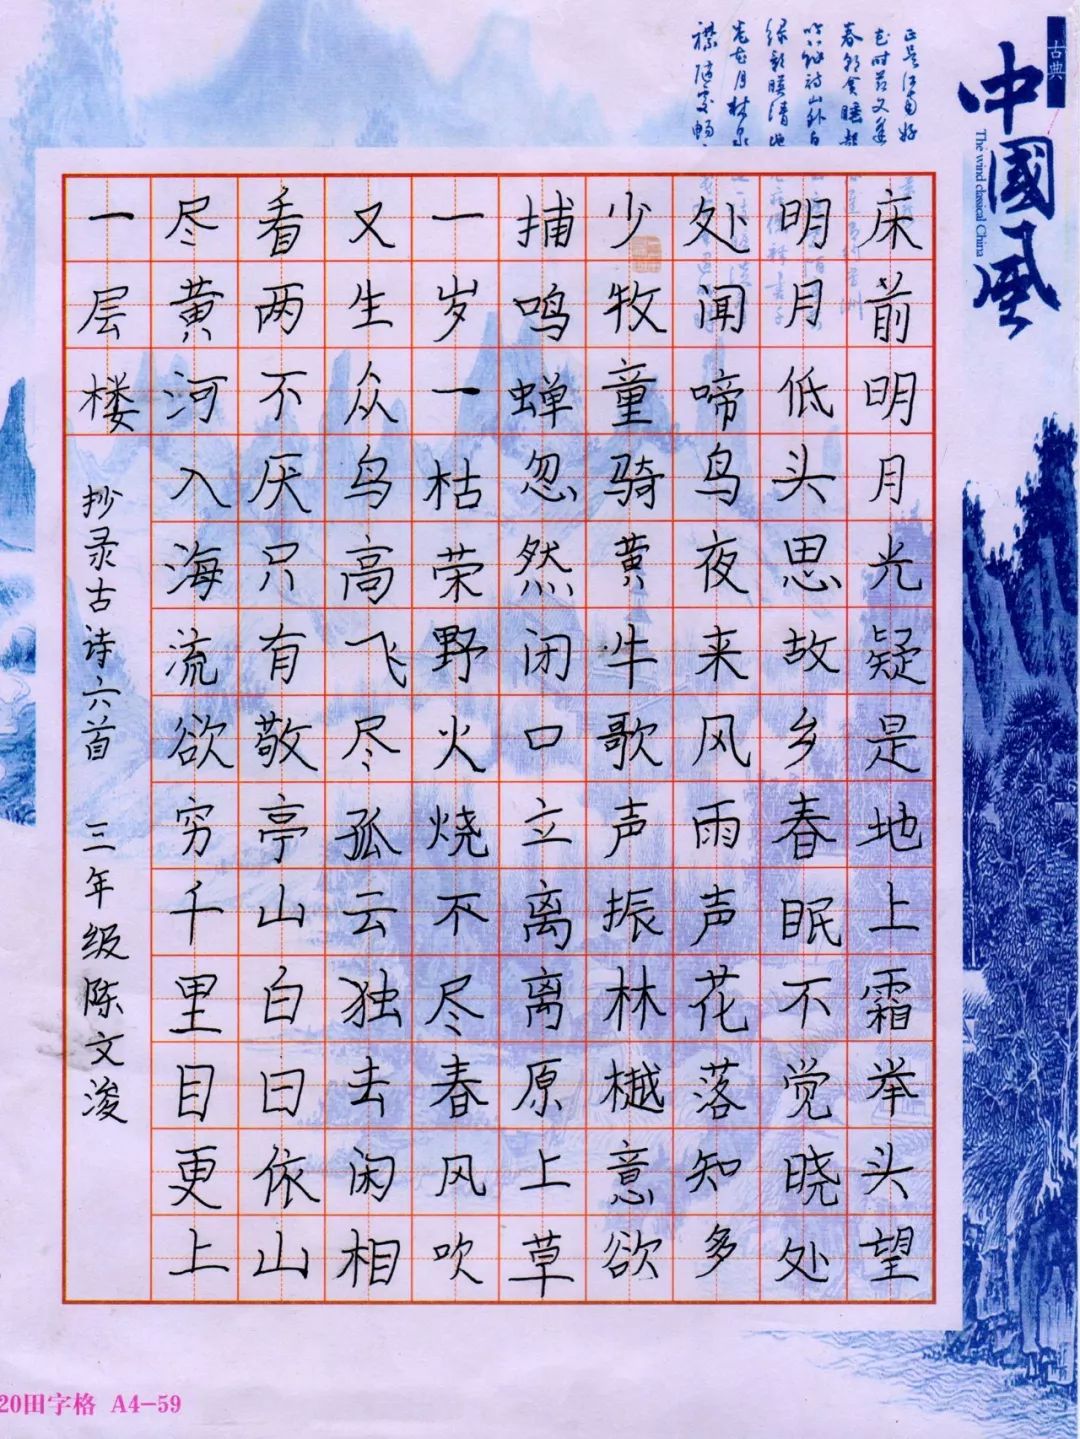 古典
中國風
The wind classical China
床前明月光疑是地上霜举头望
明月低头思故乡春眠不觉晓处
处闻啼鸟夜来风雨声花落知多
少牧童骑黄牛歌声振林樾意欲
捕鸣蝉忽然闭口立离离原上草
一岁一枯荣野火烧不尽春风吹
又生众鸟高飞尽孤云独去闲相
看两不厌只有敬亭山白日依山
尽黄河入海流欲穷千里目更上
一层楼
抄录古诗六首 三年级陈文浚
20田字格 A4-59